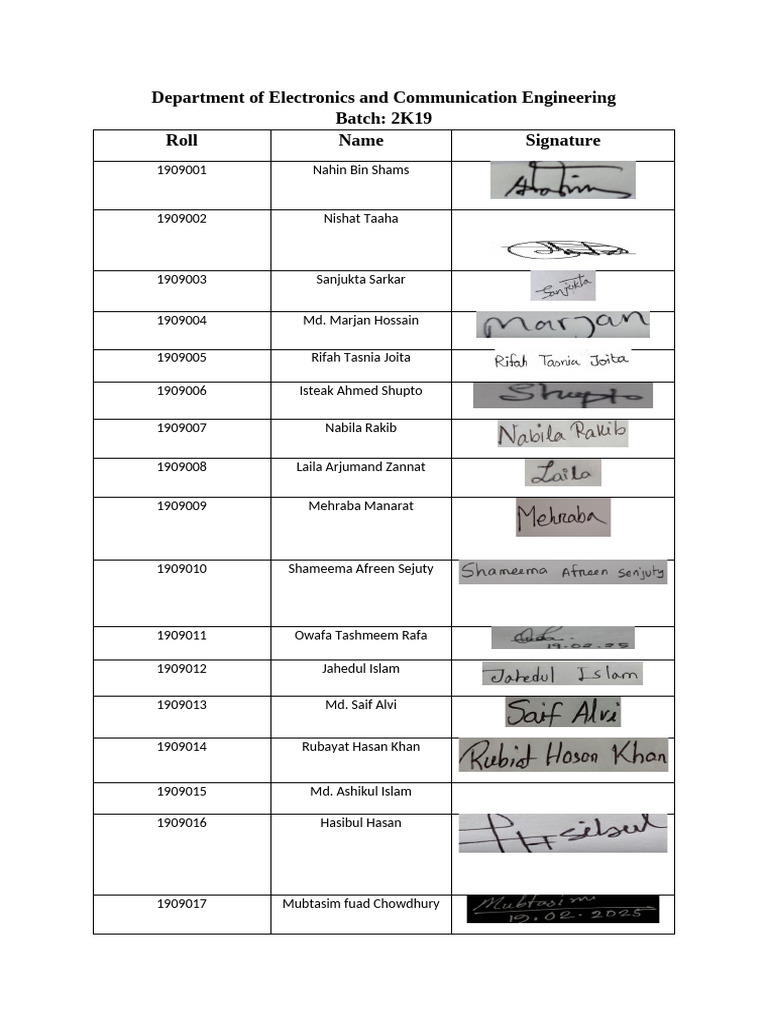 Department of Electronics and Communication Engineering
Batch: 2K19
Roll Name Signature
1909001 Nahin Bin Shams Nahin
1909002 Nishat Taaha
1909003 Sanjukta Sarkar Sanjukta
1909004 Md. Marjan Hossain Marjan
1909005 Rifah Tasnia Joita Rifah Tasnia Joita
1909006 Isteak Ahmed Shupto Shupto
1909007 Nabila Rakib Nabila Rakib
1909008 Laila Arjumand Zannat Laila
1909009 Mehraba Manarat Mehraba
1909010 Shameema Afreen Sejuty Shameema Afreen Senjuty
1909011 Owafa Tashmeem Rafa
19.02.25
1909012 Jahedul Islam Jahedul Islam
1909013 Md. Saif Alvi Saif Alvi
1909014 Rubayat Hasan Khan Rubiat Hosan Khan
1909015 Md. Ashikul Islam
1909016 Hasibul Hasan Hasibul
1909017 Mubtasim fuad Chowdhury Mubtasim
19.02.2025